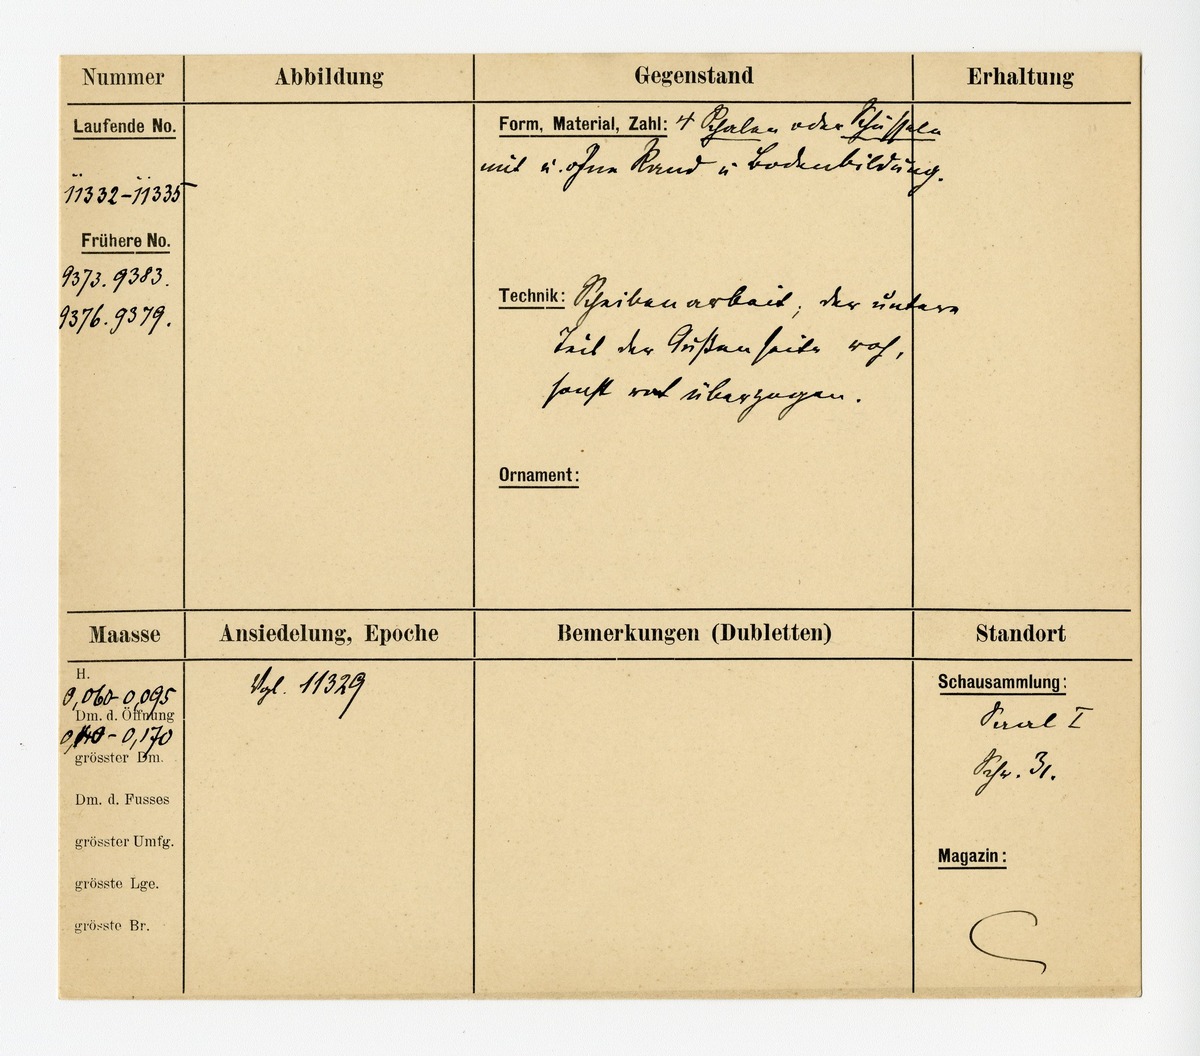 Nummer
Abbildung
Gegenstand
Erhaltung
Laufende No.
11332-11335
Frühere No.
9373. 9383.
9376. 9379.
Form, Material, Zahl: 4 Schalen oder Schüsseln
mit u. ohne Rand u Bodenbildung.
Technik: Scheibenarbeit; der untere
Teil der Außenseite roh,
sonst rot überzogen.
Ornament:
Maasse
Ansiedelung, Epoche
Bemerkungen (Dubletten)
Standort
H.
0,060-0,095
Dm. d. Öffnung
- 0,170
grösster Dm.
Dm. d. Fusses
grösster Umfg.
grösste Lge.
grösste Br.
Vgl. 11329
Schausammlung:
Saal I
Schr. 31.
Magazin: